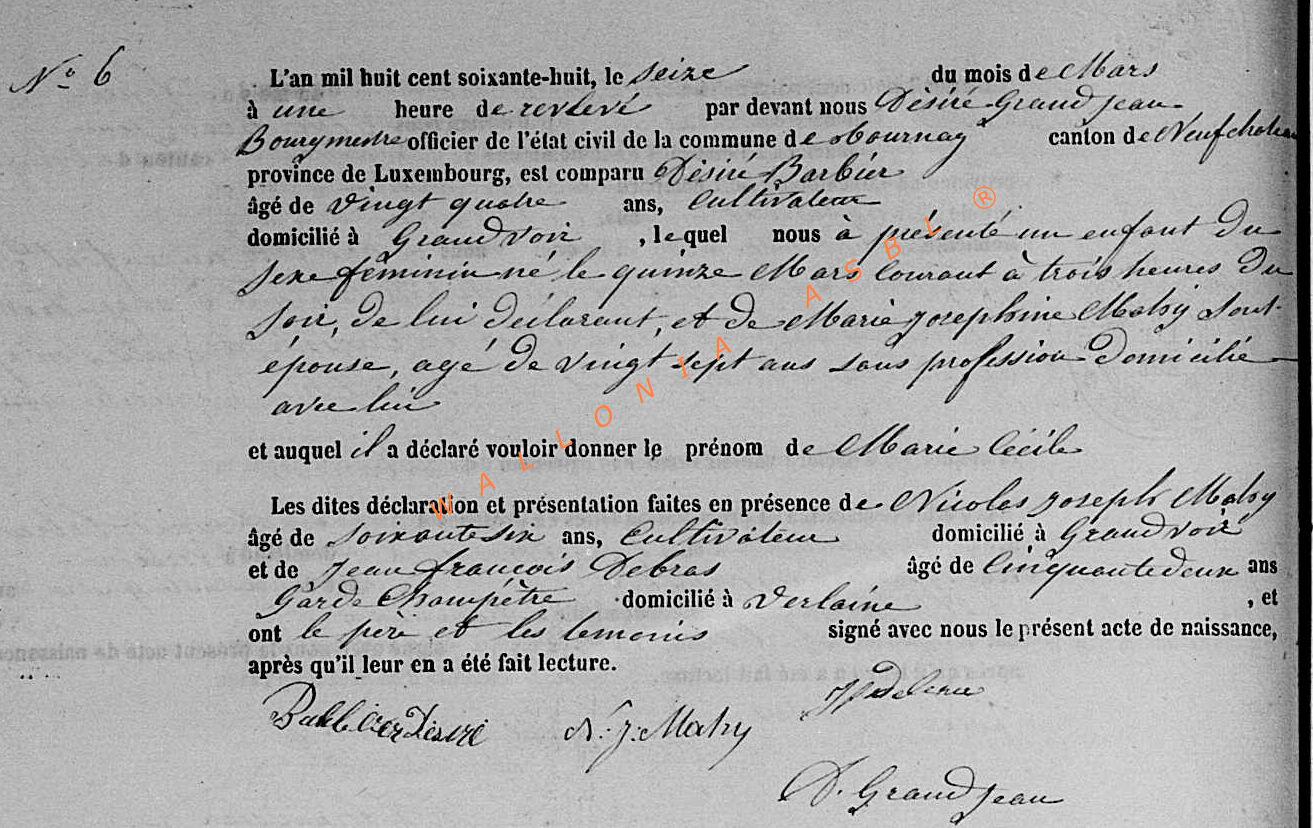 N° 6
L'an mil huit cent soixante-huit, le seize du mois de Mars
à une heure de relevé par devant nous Désiré Grandjean
Bourgmestre officier de l'état civil de la commune de Tournay canton de Neufchateau
province de Luxembourg, est comparu Désiré Barbier
âgé de vingt quatre ans, Cultivateur
domicilié à Grandvoir , lequel nous à présenté un enfant du
sexe féminin né le quinze Mars courant à trois heures du
soir, de lui déclarant, et de Marie Josephine Mahy sont
épouse, agé de vingt sept ans sans profession domicilié
avec lui
et auquel il a déclaré vouloir donner le prénom de Marie Cécile
Les dites déclaration et présentation faites en présence de Nicolas Joseph Mahy
âgé de soixante six ans, Cultivateur domicilié à Grandvoir
et de Jean françois Debras âgé de Cinquante deux ans
Garde Champêtre domicilié à Verlaine , et
ont le père et les temoins signé avec nous le présent acte de naissance,
après qu'il leur en a été fait lecture.
Barbier Désiré N. J. Mahy
D. Grandjean
WALLONIA ASBL ®